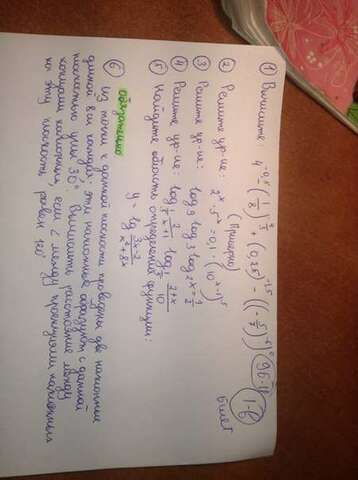 I-б
билет
① Вычислите: 4^{-0,5} - (1/8)^{2/3} + (0,25)^{-2,5} - ((-5/7)^{-6})^0
② Решите ур-ие: 2^x · 5^x = 0,1 · (10^{x-1})^5
(Пример)
③ Решите ур-ие: log_9 log_3 log_2 x =
④ Решите ур-ие:
⑤ Найдите область определения функции:
y = lg (3x-2)/(x²+8x)
Обязательно
⑥ Из точки к данной плоскости проведены две наклонные
длиной 8см каждая; эти наклонные образуют с данной
плоскостью углы 30°. Вычислить расстояние между
концами наклонных, если ∠ между проекциями наклонных
на эту плоскость равен 120°